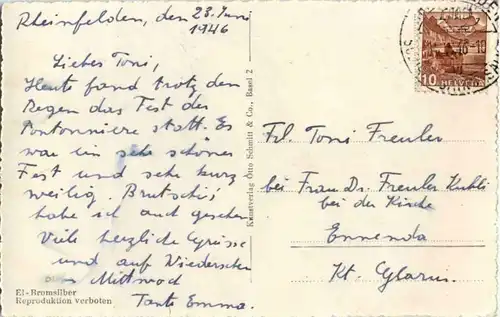 Rheinfelden, den 23. Juni
1946
Liebes Toni,
Heute fand trotz dem
Regen das Fest der
Pontonniere statt. Es
war ein sehr schönes
Fest und sehr kurz
weilig. Brutschi's
habe ich auch gesehen
Viele herzliche Grüsse
und auf Wiedersehen
Mittwoch
Tante Emma.
El-Bromsilber
Reproduktion verboten
Kunstverlag Otto Schmitt & Co., Basel 2
10 HELVETIA
Frl. Toni Freuler
bei Frau Dr. Freuler
bei der Kirche
Ennenda
Kt. Glarus.